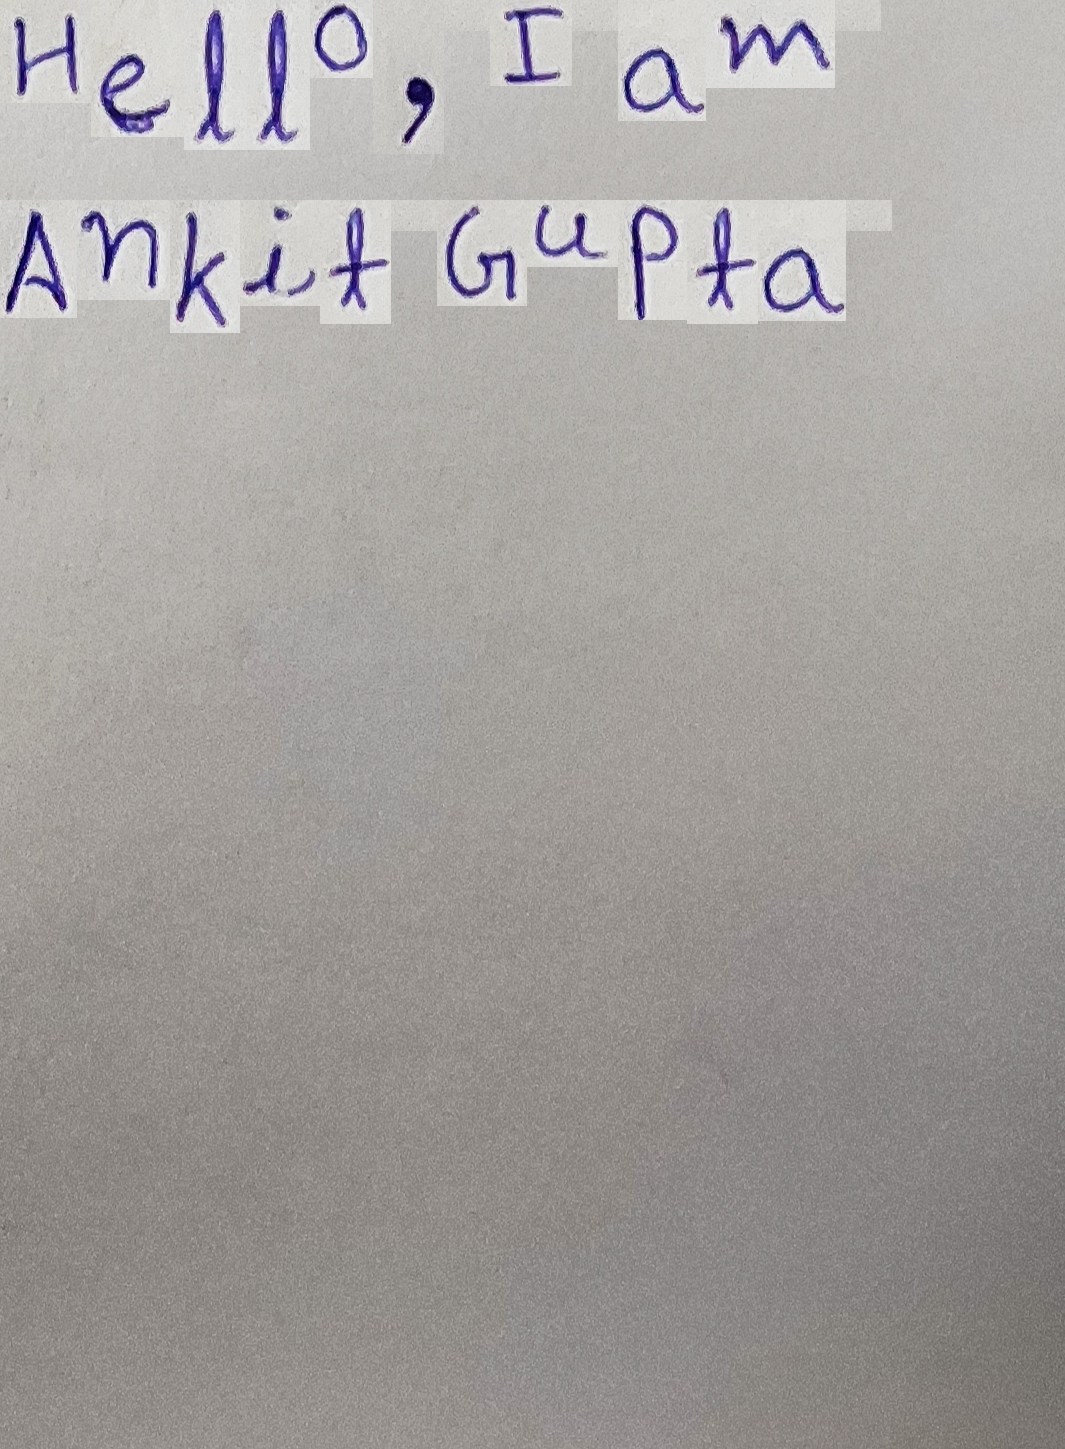 Hello, I am
Ankit Gupta